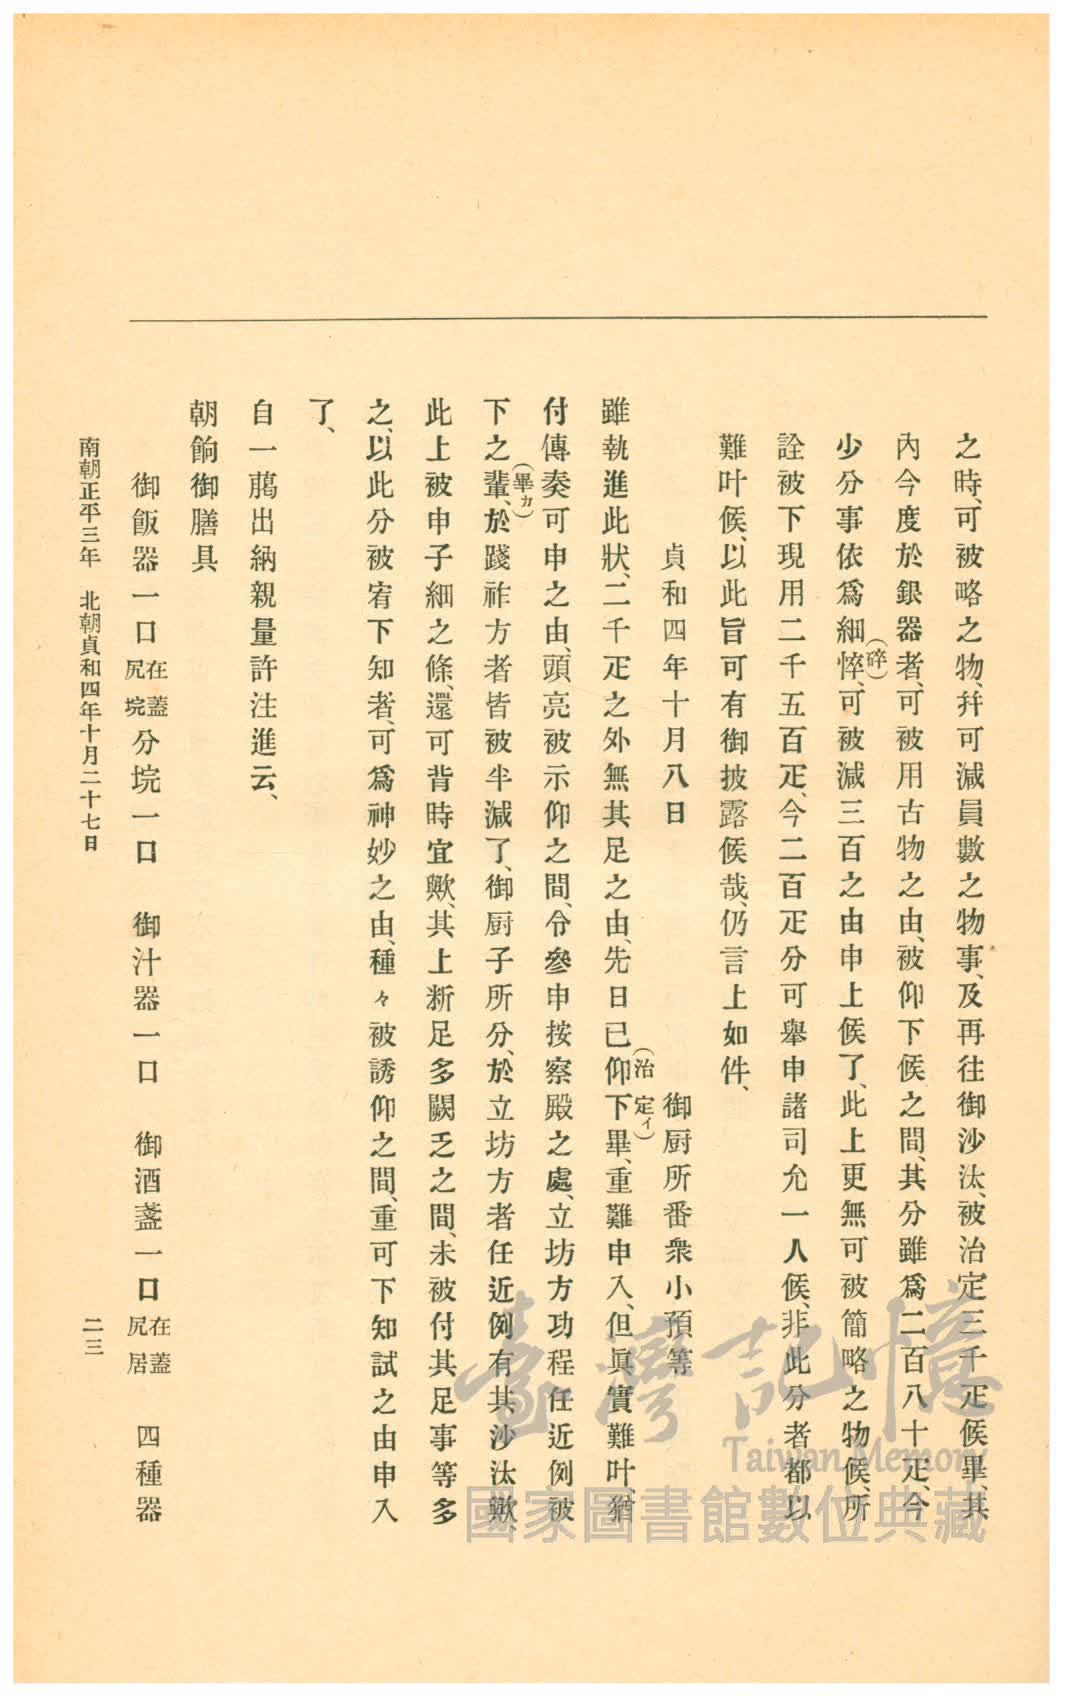 之時、可被略之物、幷可減員數之物事、及再往御沙汰、被治定三千疋候畢、其
內今度於銀器者、可被用古物之由、被仰下候之間、其分雖爲二百八十疋、今
少分事依爲細悴、(碎)可被減三百之由申上候了、此上更無可被簡略之物候、所
詮被下現用二千五百疋、今二百疋分可擧申諸司允一人候、非此分者都以
難叶候、以此旨可有御披露候哉、仍言上如件、
貞和四年十月八日　御厨所番衆小預等
雖執進此狀、二千疋之外無其足之由、先日已仰下(治定ィ)畢、重難申入、但眞實難叶、猶
付傳奏可申之由、頭亮被示仰之間、令參申按察殿之處、立坊方功程任近例被
下之輩、(畢カ)於踐祚方者皆被半減了、御厨子所分、於立坊方者任近例有其沙汰歟、
此上被申子細之條、還可背時宜歟、其上新足多闕乏之間、未被付其足事等多
之、以此分被宥下知者、可爲神妙之由、種々被誘仰之間、重可下知試之由申入
了、
自一﨟出納親量許注進云、
朝餉御膳具
御飯器一口在蓋尻垸分垸一口　御汁器一口　御酒盞一口在蓋尻居　四種器
南朝正平三年　北朝貞和四年十月二十七日
二三
臺灣記憶
Taiwan Memory
國家圖書館數位典藏